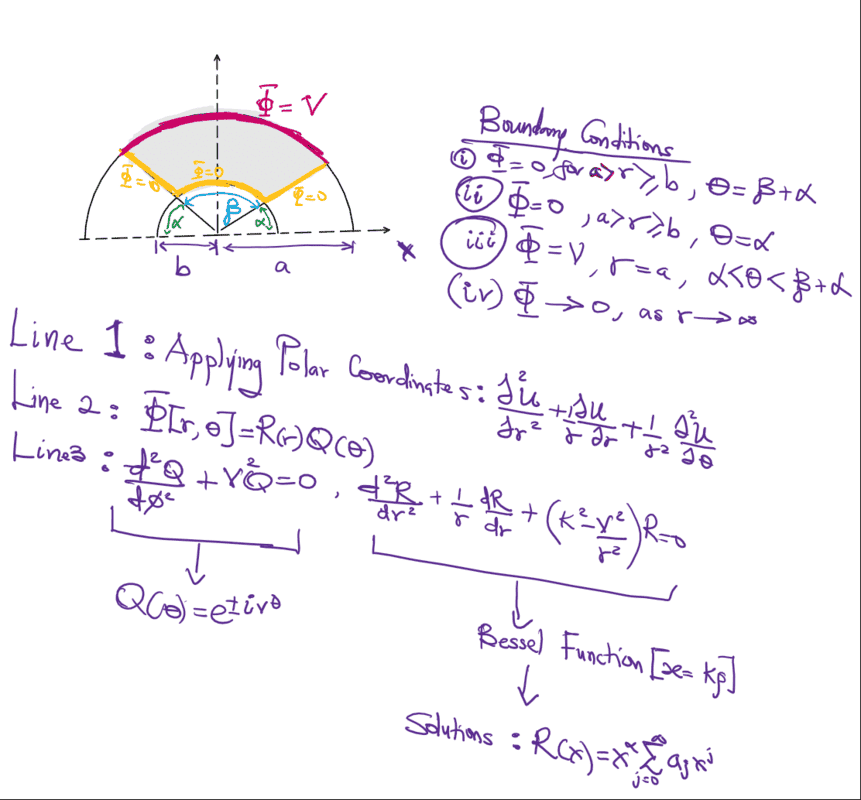 Φ = V
Φ = 0
Φ = 0
Φ = 0
α β α
x
b a
Boundary Conditions
(i) Φ = 0, for a > r ≥ b, θ = β + α
(ii) Φ = 0, a > r ≥ b, θ = α
(iii) Φ = V, r = a, α < θ < β + α
(iv) Φ → 0, as r → ∞
Line 1 : Applying Polar Coordinates: ∂²u/∂r² + 1/r ∂u/∂r + 1/r² ∂²u/∂θ
Line 2 : Φ[r, θ] = R(r)Q(θ)
Line 3 : d²Q/dφ² + ν²Q = 0 , d²R/dr² + 1/r dR/dr + (k² - ν²/r²)R = 0
Q(θ) = e±iνθ
Bessel Function [x = kρ]
Solutions : R(x) = x^α ∑_{j=0}^∞ a_j x^j